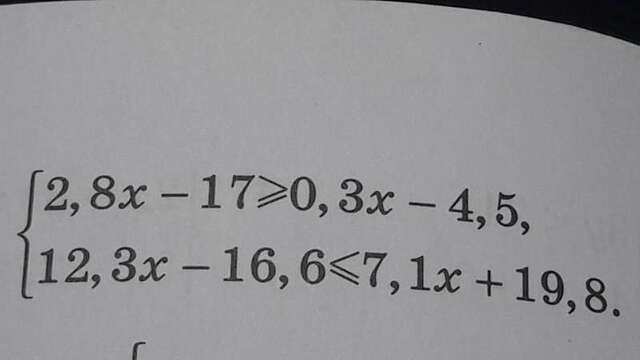 2,8x − 17 ⩾ 0,3x − 4,5,
12,3x − 16,6 ⩽ 7,1x + 19,8.